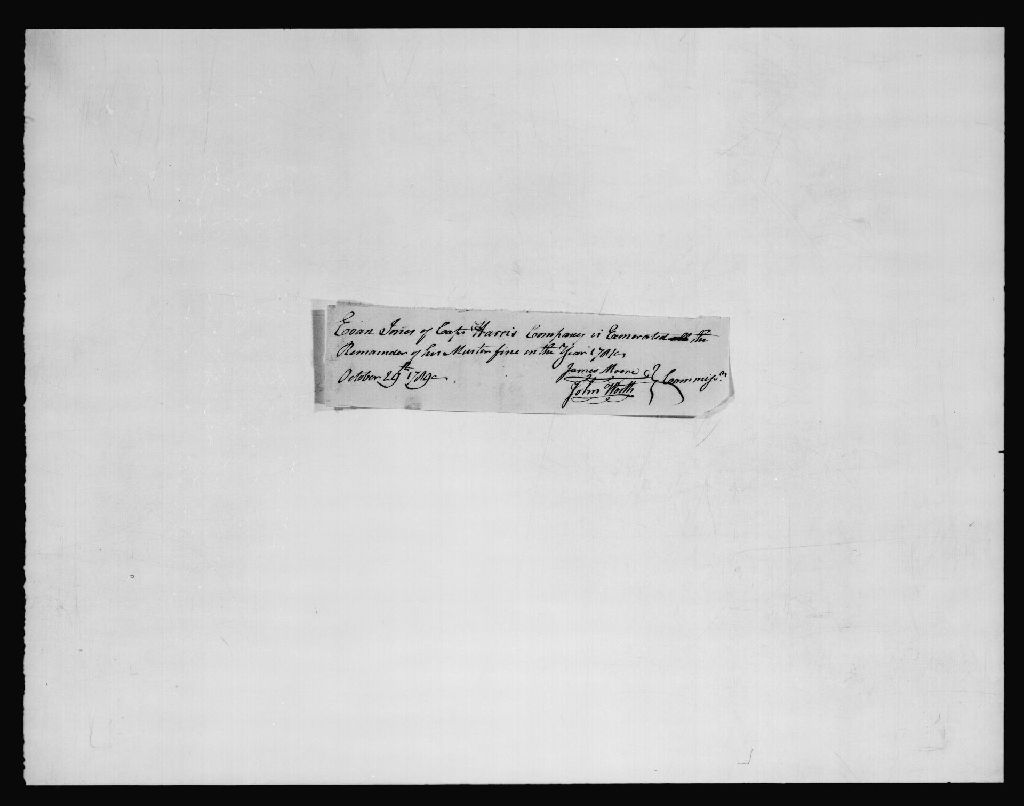 Evan Jones of Capt Harris Company is Exonerated the
Remainder of his Muster fine in the Year
October 29th
James Moore
John
Commissrs